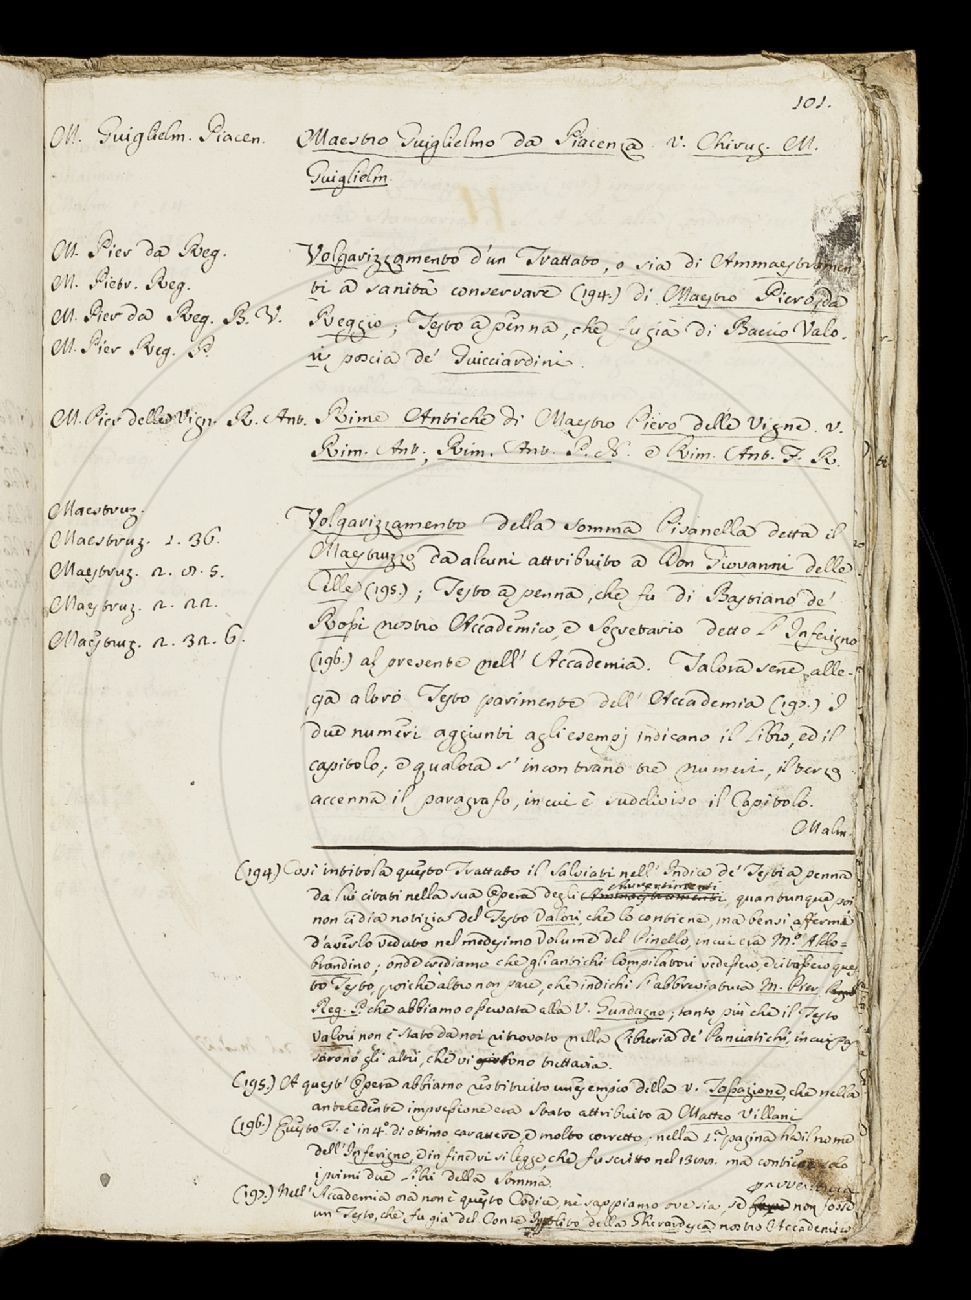 101.
M. Guiglielm. Piacen. Maestro Guiglielmo da Piacenza. v. Chirug. M.
Guiglielm.
M. Pier da Reg. Volgarizzamento d'un Trattato, o sia di Ammaestramen
M. Pietr. Reg. ti a sanità conservare (194.) di Maestro Piero da
M. Pier da Reg. B. V. Reggio; Testo a penna, che fu già di Baccio Valo-
M. Pier Reg. P. ri poscia de' Guicciardini.
M. Pier delle Vign. R. Ant. Rime Antiche di Maestro Piero delle Vigne. v.
Rim. Ant., Rim. Ant. P. N. e Rim. Ant. F. R.
Maestruz. Volgarizzamento della Somma Pisanella detta il
Maestruz. 1. 36. Maestruzzo da alcuni attribuito a Don Giovanni delle
Maestruz. 2. 11. 5. Celle (195.); Testo a penna, che fu di Bastiano de'
Maestruz. 2. 22. Rossi nostro Accademico, e Segretario detto l'Inferigno
Maestruz. 2. 32. 6. (196.) al presente nell'Accademia. Talora sene alle-
ga altro Testo parimente dell'Accademia (197.) I
due numeri aggiunti agli esempj indicano il Libro, ed il
capitolo; e qualora s'incontrano tre numeri, il terzo
accenna il paragrafo, in cui è suddiviso il Capitolo.
Malm.
(194) Così intitola questo Trattato il Salviati nell'Indice de' Testi a penna
da lui citati nella sua Opera degli Avvertimenti, quantunque poi
non ci dia notizia del Testo Valori che lo contiene, ma bensì affermi
d'averlo veduto nel medesimo Volume del Pinello, in cui era M.º Aldo=
brandino; onde crediamo che gli antichi Compilatori vedessero, e citassero ques
to Testo, poichè altro non pare, che indichi l'abbreviatura M. Pier
Reg. P. che abbiamo osservata alla V. Guadagno; tanto più che il Testo
Valori non è stato da noi ritrovato nella Libreria de' Panciatichi, in cui pas
sarono gli altri, che vi sono tuttavia.
(195.) A quest'Opera abbiamo restituito un esempio della v. Tassazione, che nella
antecedente impressione era stato attribuito a Matteo Villani
(196.) Questo T. è in 4.º di ottimo carattere, e molto corretto; nella 1.ª pagina ha il nome
dell'Inferigno, e in fine vi si legge, che fu scritto nel ma contiene solo
i primi due Libri della Somma.
(197.) Nell'Accademia ora non è questo Codice, nè sappiamo ove sia, se non fosse
un Testo, che fu già del Conte Ippolito della Gherardesca nostro Accademico